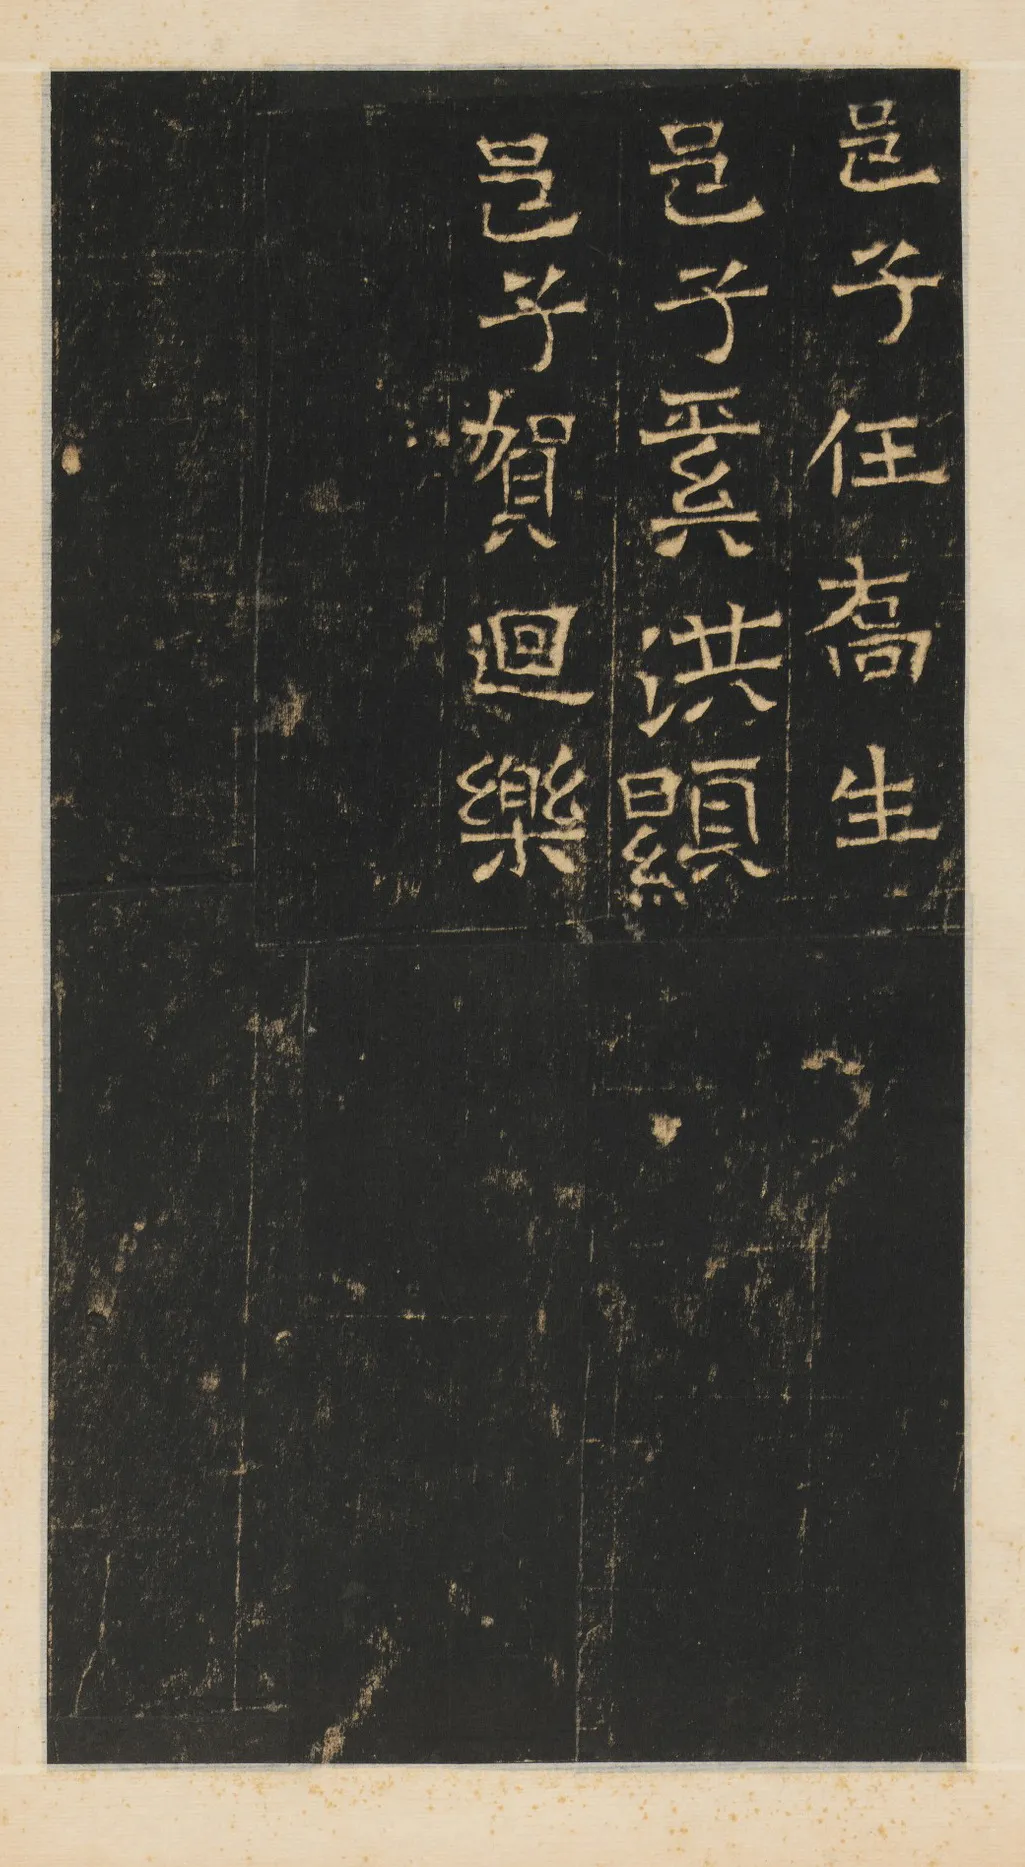 邑子任喬生
邑子洪顯
邑子賀迴樂